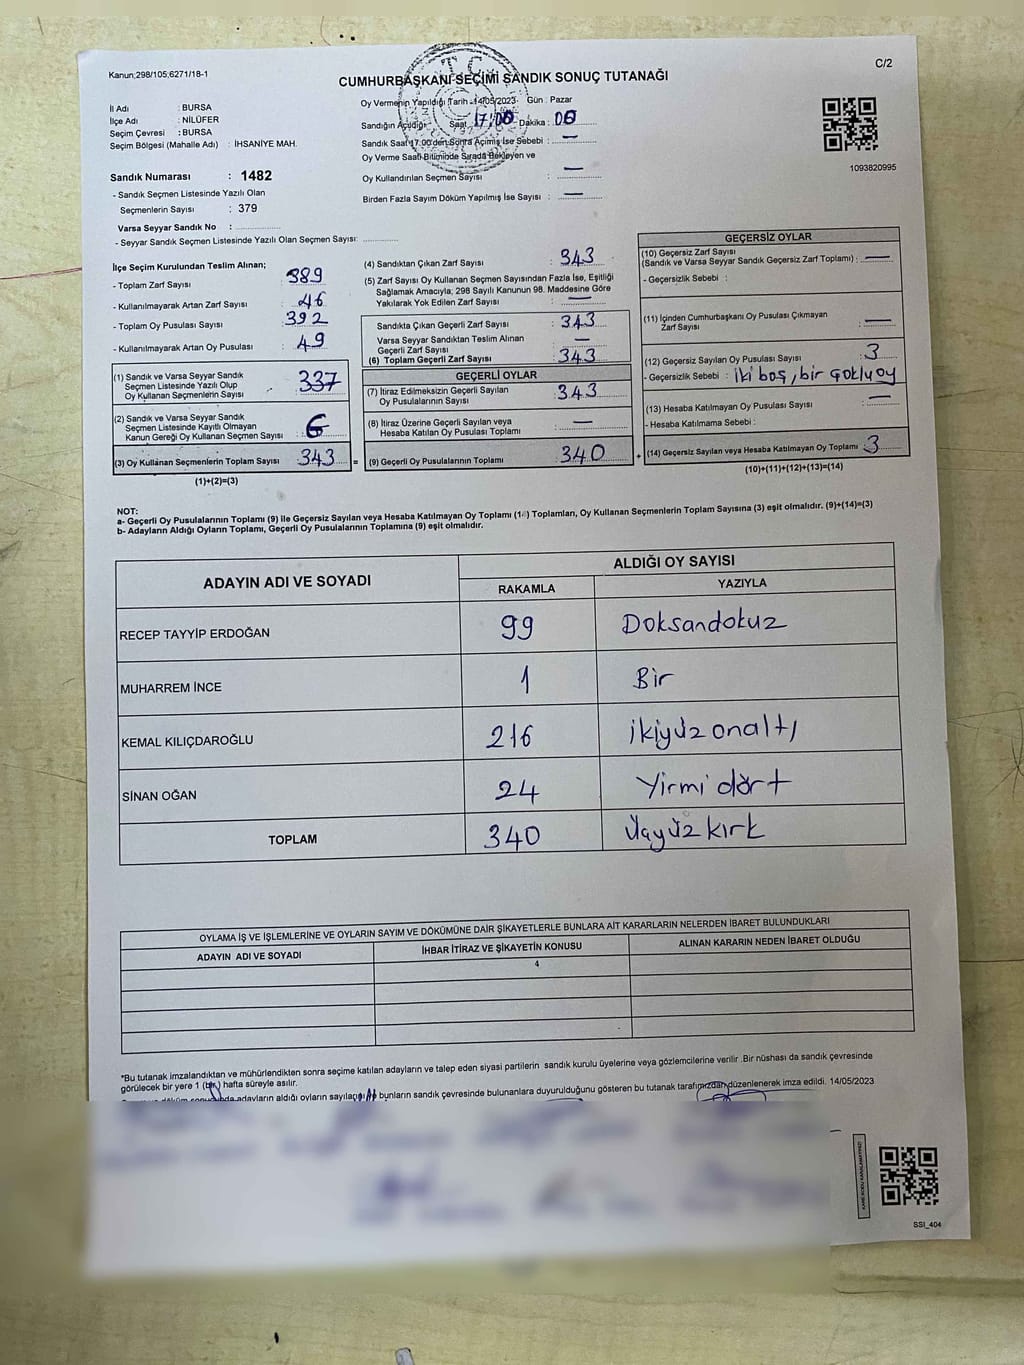 Kanun;298/105;6271/18-1
C/2
CUMHURBAŞKANI SEÇİMİ SANDIK SONUÇ TUTANAĞI
T.C
İl Adı : BURSA
İlçe Adı : NİLÜFER
Seçim Çevresi : BURSA
Seçim Bölgesi (Mahalle Adı) : İHSANİYE MAH.
Oy Vermenin Yapıldığı Tarih :14/05/2023 Gün : Pazar
Sandığın Açıldığı Saat 17:00 Dakika : 06
Sandık Saat 17:00'den Sonra Açılmış İse Sebebi : —
Oy Verme Saati Bitiminde Sırada Bekleyen ve
Oy Kullandırılan Seçmen Sayısı : —
Birden Fazla Sayım Döküm Yapılmış İse Sayısı : —
1093820995
Sandık Numarası : 1482
- Sandık Seçmen Listesinde Yazılı Olan
Seçmenlerin Sayısı : 379
Varsa Seyyar Sandık No :
- Seyyar Sandık Seçmen Listesinde Yazılı Olan Seçmen Sayısı:
İlçe Seçim Kurulundan Teslim Alınan;
- Toplam Zarf Sayısı : 389
- Kullanılmayarak Artan Zarf Sayısı : 46
- Toplam Oy Pusulası Sayısı : 392
- Kullanılmayarak Artan Oy Pusulası : 49
(1) Sandık ve Varsa Seyyar Sandık
Seçmen Listesinde Yazılı Olup
Oy Kullanan Seçmenlerin Sayısı : 337
(2) Sandık ve Varsa Seyyar Sandık
Seçmen Listesinde Kayıtlı Olmayan
Kanun Gereği Oy Kullanan Seçmen Sayısı : 6
(3) Oy Kullanan Seçmenlerin Toplam Sayısı 343
(1)+(2)=(3)
(4) Sandıktan Çıkan Zarf Sayısı : 343
(5) Zarf Sayısı Oy Kullanan Seçmen Sayısından Fazla İse, Eşitliği
Sağlamak Amacıyla; 298 Sayılı Kanunun 98. Maddesine Göre
Yakılarak Yok Edilen Zarf Sayısı : —
Sandıkta Çıkan Geçerli Zarf Sayısı : 343
Varsa Seyyar Sandıktan Teslim Alınan
Geçerli Zarf Sayısı : —
(6) Toplam Geçerli Zarf Sayısı : 343
GEÇERLİ OYLAR
(7) İtiraz Edilmeksizin Geçerli Sayılan
Oy Pusulalarının Sayısı : 343
(8) İtiraz Üzerine Geçerli Sayılan veya
Hesaba Katılan Oy Pusulası Toplamı : —
= (9) Geçerli Oy Pusulalarının Toplamı : 340
GEÇERSİZ OYLAR
(10) Geçersiz Zarf Sayısı
(Sandık ve Varsa Seyyar Sandık Geçersiz Zarf Toplamı) : —
- Geçersizlik Sebebi :
(11) İçinden Cumhurbaşkanı Oy Pusulası Çıkmayan
Zarf Sayısı : —
(12) Geçersiz Sayılan Oy Pusulası Sayısı : 3
- Geçersizlik Sebebi : iki boş, bir çoklu oy
(13) Hesaba Katılmayan Oy Pusulası Sayısı : —
- Hesaba Katılmama Sebebi :
+ (14) Geçersiz Sayılan veya Hesaba Katılmayan Oy Toplamı : 3
(10)+(11)+(12)+(13)=(14)
NOT:
a- Geçerli Oy Pusulalarının Toplamı (9) ile Geçersiz Sayılan veya Hesaba Katılmayan Oy Toplamı (14) Toplamları, Oy Kullanan Seçmenlerin Toplam Sayısına (3) eşit olmalıdır. (9)+(14)=(3)
b- Adayların Aldığı Oyların Toplamı, Geçerli Oy Pusulalarının Toplamına (9) eşit olmalıdır.
ADAYIN ADI VE SOYADI
ALDIĞI OY SAYISI
RAKAMLA YAZIYLA
RECEP TAYYİP ERDOĞAN 99 Doksandokuz
MUHARREM İNCE 1 Bir
KEMAL KILIÇDAROĞLU 216 ikiyüzonaltı
SİNAN OĞAN 24 Yirmi dört
TOPLAM 340 Üçyüzkırk
OYLAMA İŞ VE İŞLEMLERİNE VE OYLARIN SAYIM VE DÖKÜMÜNE DAİR ŞİKAYETLERLE BUNLARA AİT KARARLARIN NELERDEN İBARET BULUNDUKLARI
ADAYIN ADI VE SOYADI İHBAR İTİRAZ VE ŞİKAYETİN KONUSU ALINAN KARARIN NEDEN İBARET OLDUĞU
4
*Bu tutanak imzalandıktan ve mühürlendikten sonra seçime katılan adayların ve talep eden siyasi partilerin sandık kurulu üyelerine veya gözlemcilerine verilir .Bir nüshası da sandık çevresinde
görülecek bir yere 1 (bir) hafta süreyle asılır.
adayların aldığı oyların sayılarını bunların sandık çevresinde bulunanlara duyurulduğunu gösteren bu tutanak tarafımızdan düzenlenerek imza edildi. 14/05/2023
SSI_404